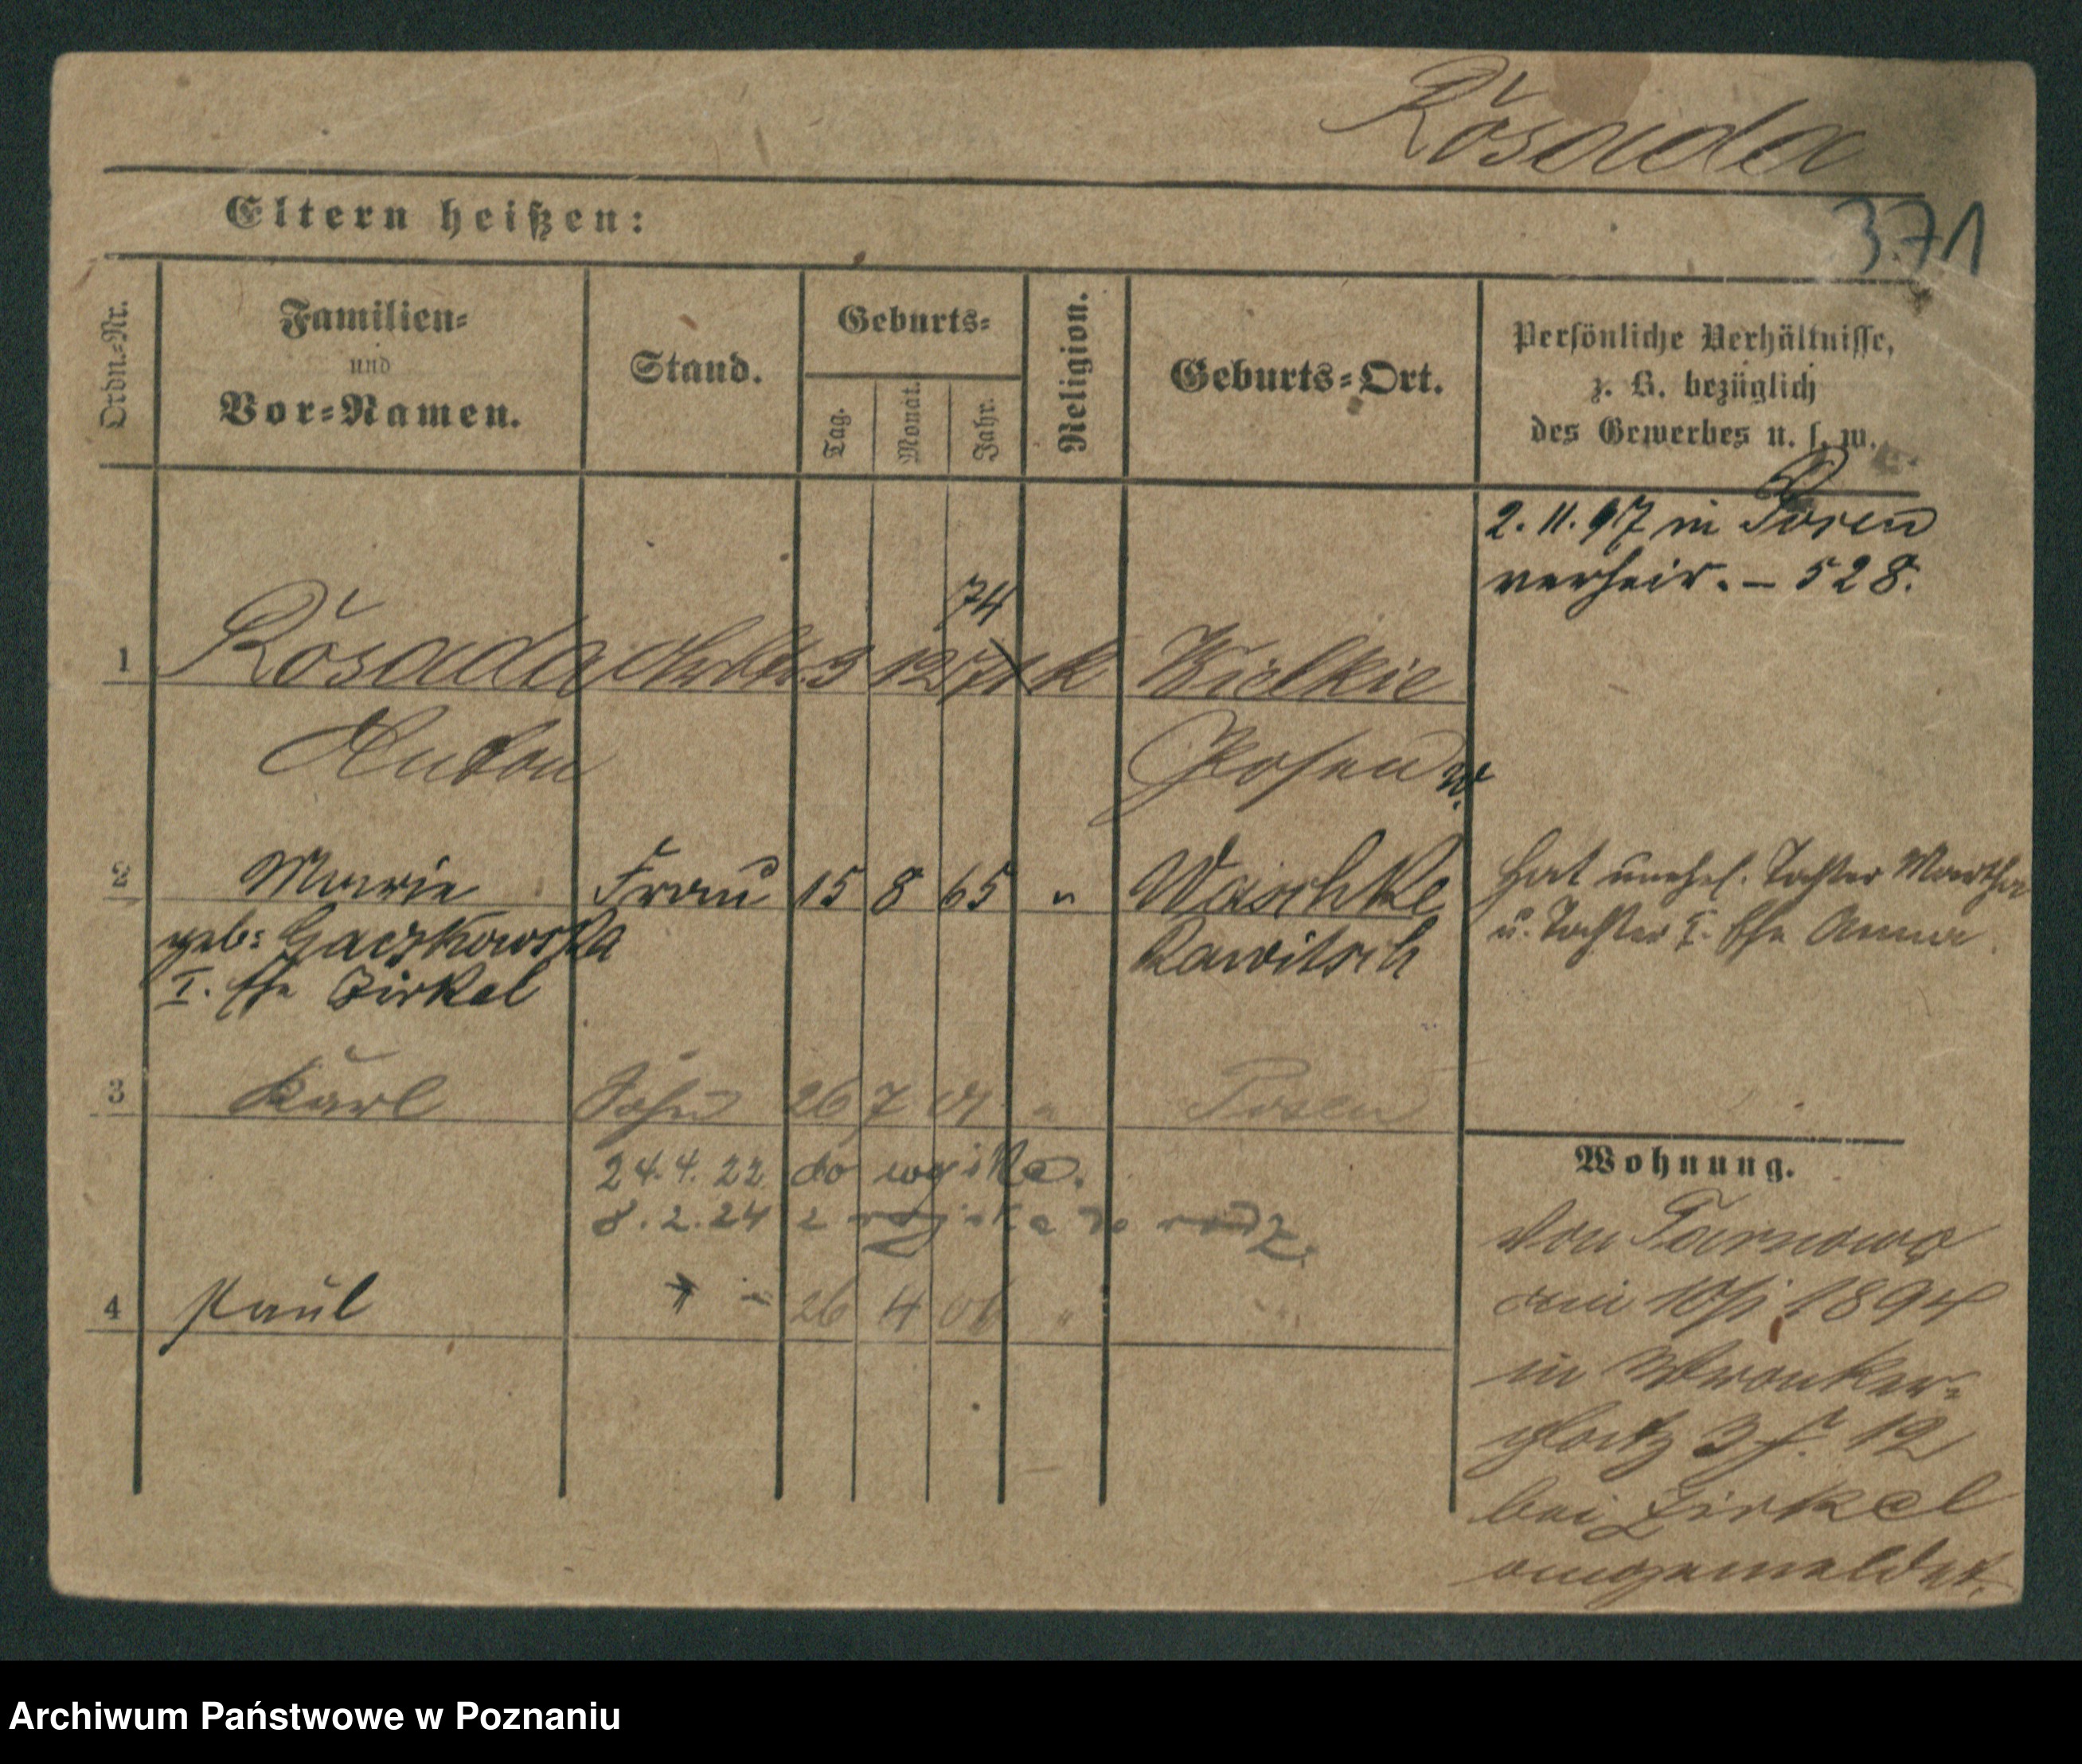 Rösada
371
Eltern heißen:
Ordn.-Nr.
Familien-
und
Vor-Namen.
Stand.
Geburts-
Tag.
Monat.
Jahr.
Religion.
Geburts-Ort.
Persönliche Verhältnisse,
z. B. bezüglich
des Gewerbes u. s. w.
2. 11. 97 in Posen
verheir. – 528.
74
1 Rösada Arbtr. 3 12 71 k Wielkie
Anton Posen W.
2 Marie Frau 15 8 65 " Waschke
geb: Gaczkowska Rawitsch
I. Ehe Zirkel
hat unehel. Tochter Martha
u. Tochter I. Ehe Anna
3 Karl Sohn 26 7 01 " Posen
24.4.22 do wojska.
8.2.24 z wojska do rodz.
4 Paul 26 4 06 "
Wohnung.
Von Tarnowo
am 10/1 1894
in Wronker-
platz 3 f. 12
bei Zirkel
angemeldet.
Archiwum Państwowe w Poznaniu